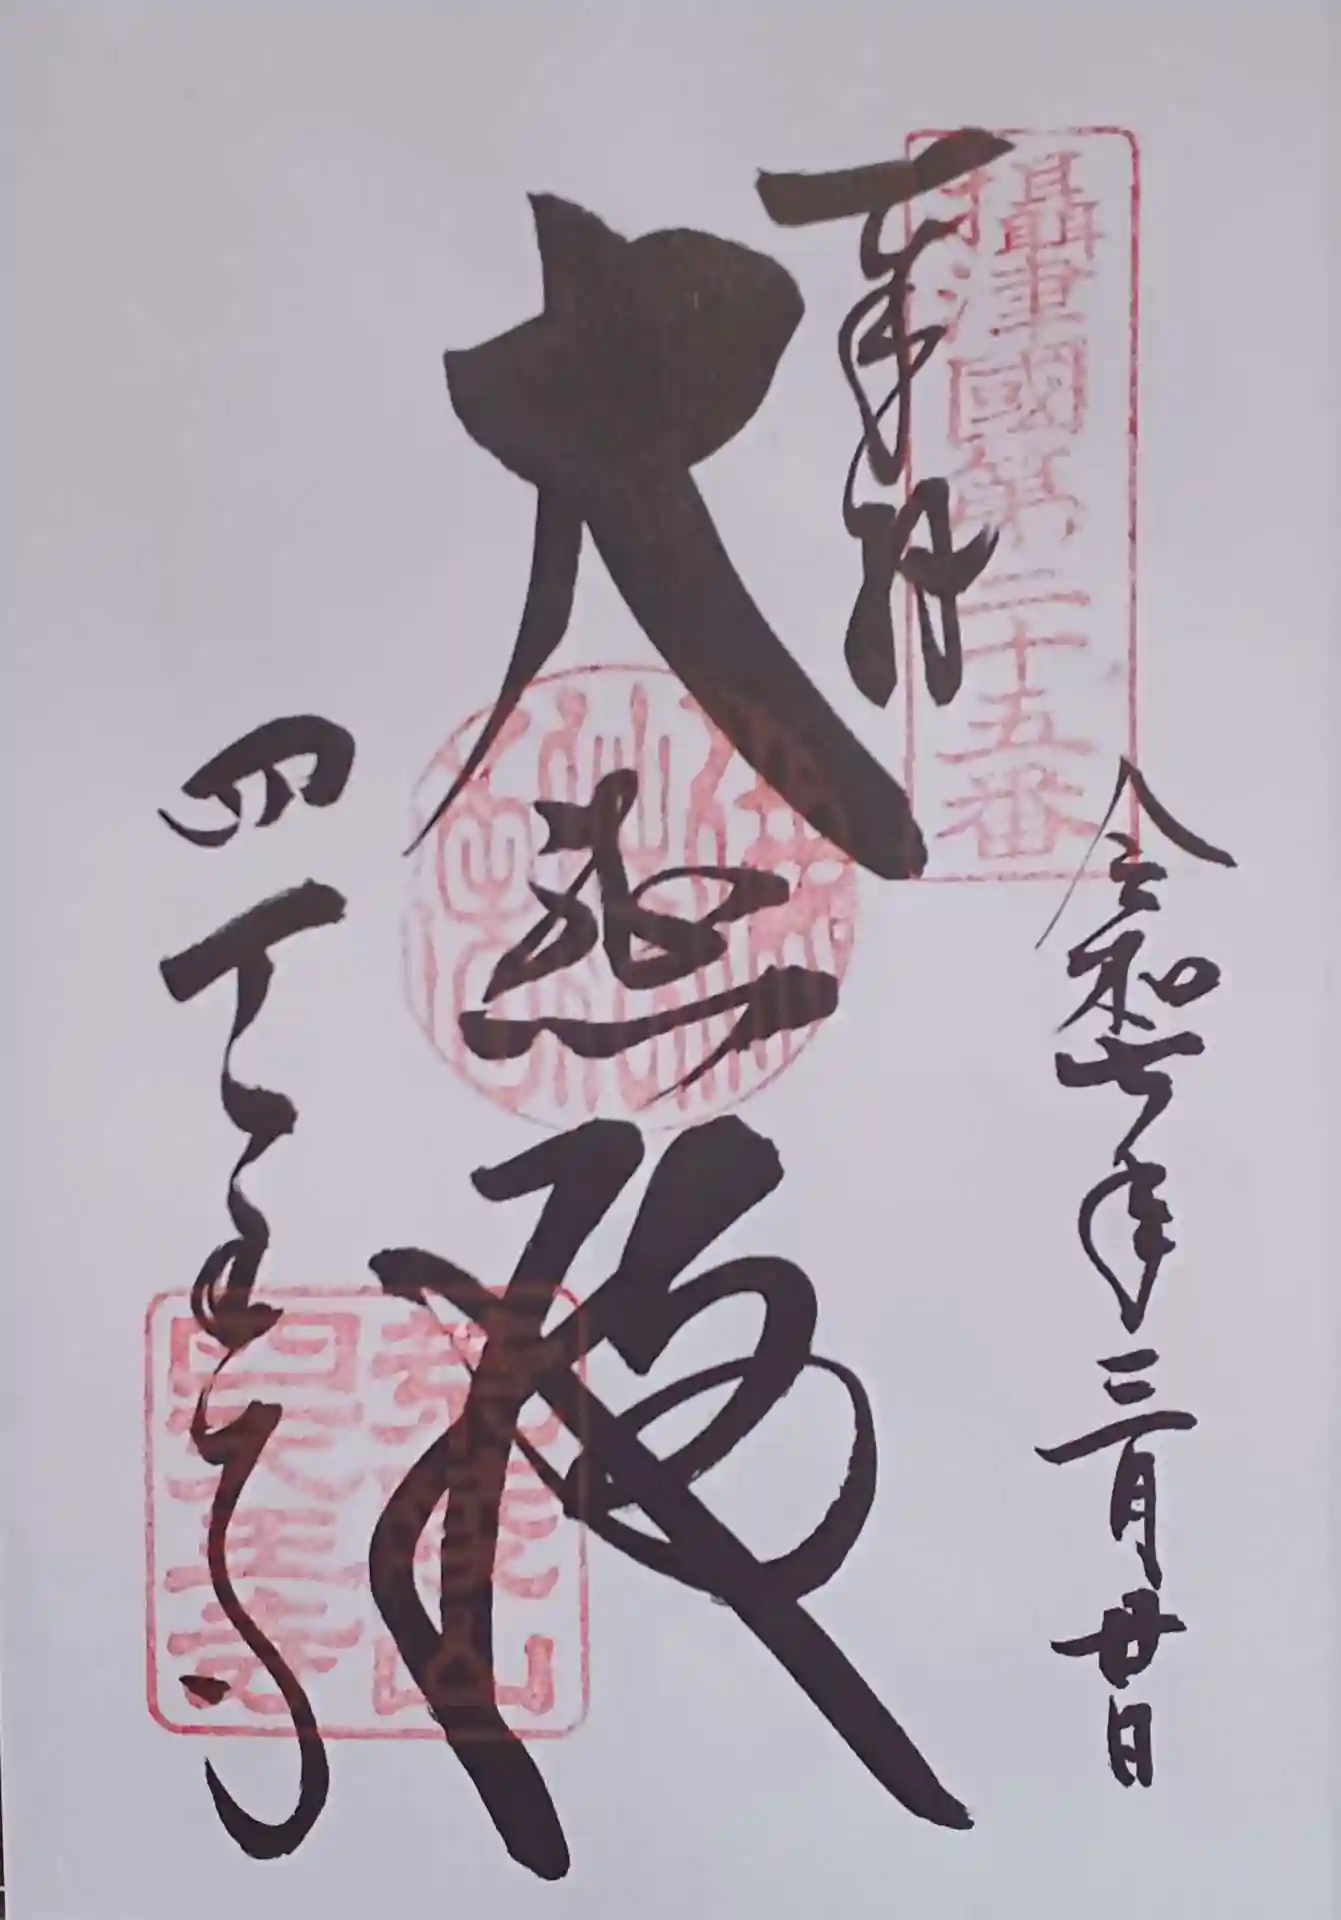 攝津國第二十五番
奉拜
令和七年三月廿日
大悲殿
四天王寺
荒陵山
四天王寺